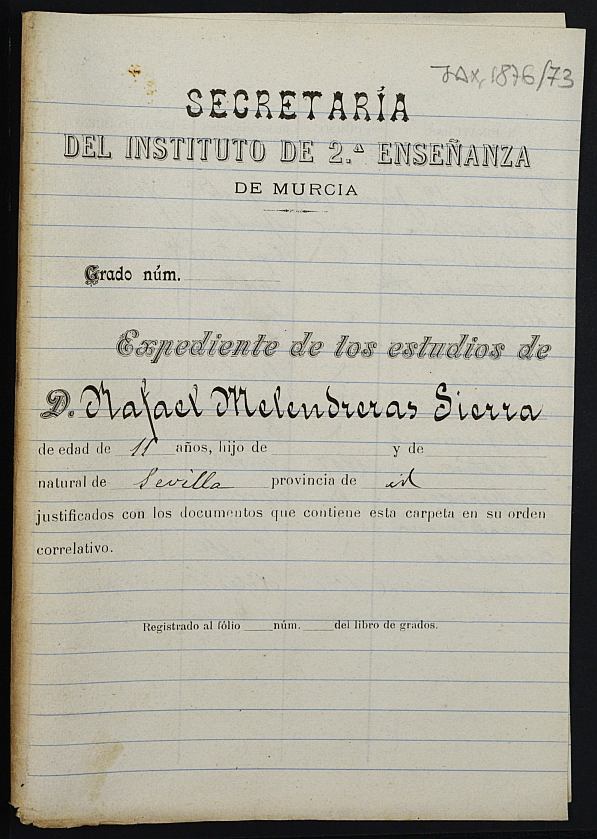 JAX, 1876/73
SECRETARÍA
DEL INSTITUTO DE 2.ª ENSEÑANZA
DE MURCIA
Grado núm.
Expediente de los estudios de
D. Rafael Melendreras Sierra
de edad de 11 años, hijo de y de
natural de Sevilla provincia de id
justificados con los documentos que contiene esta carpeta en su orden
correlativo.
Registrado al fólio núm. del libro de grados.